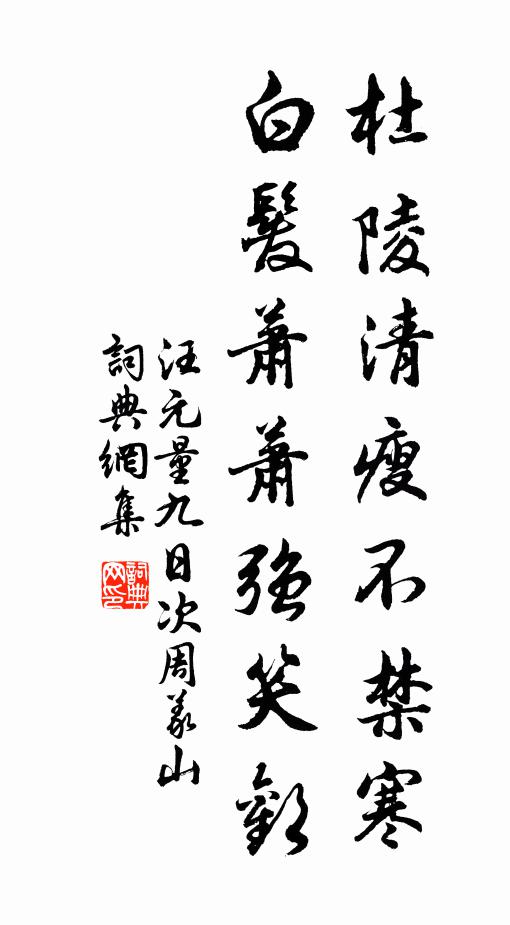 杜陵清瘦不禁寒
白髮蕭蕭強笑歡
汪元量九日次周義山
詞典網集
詞典网印